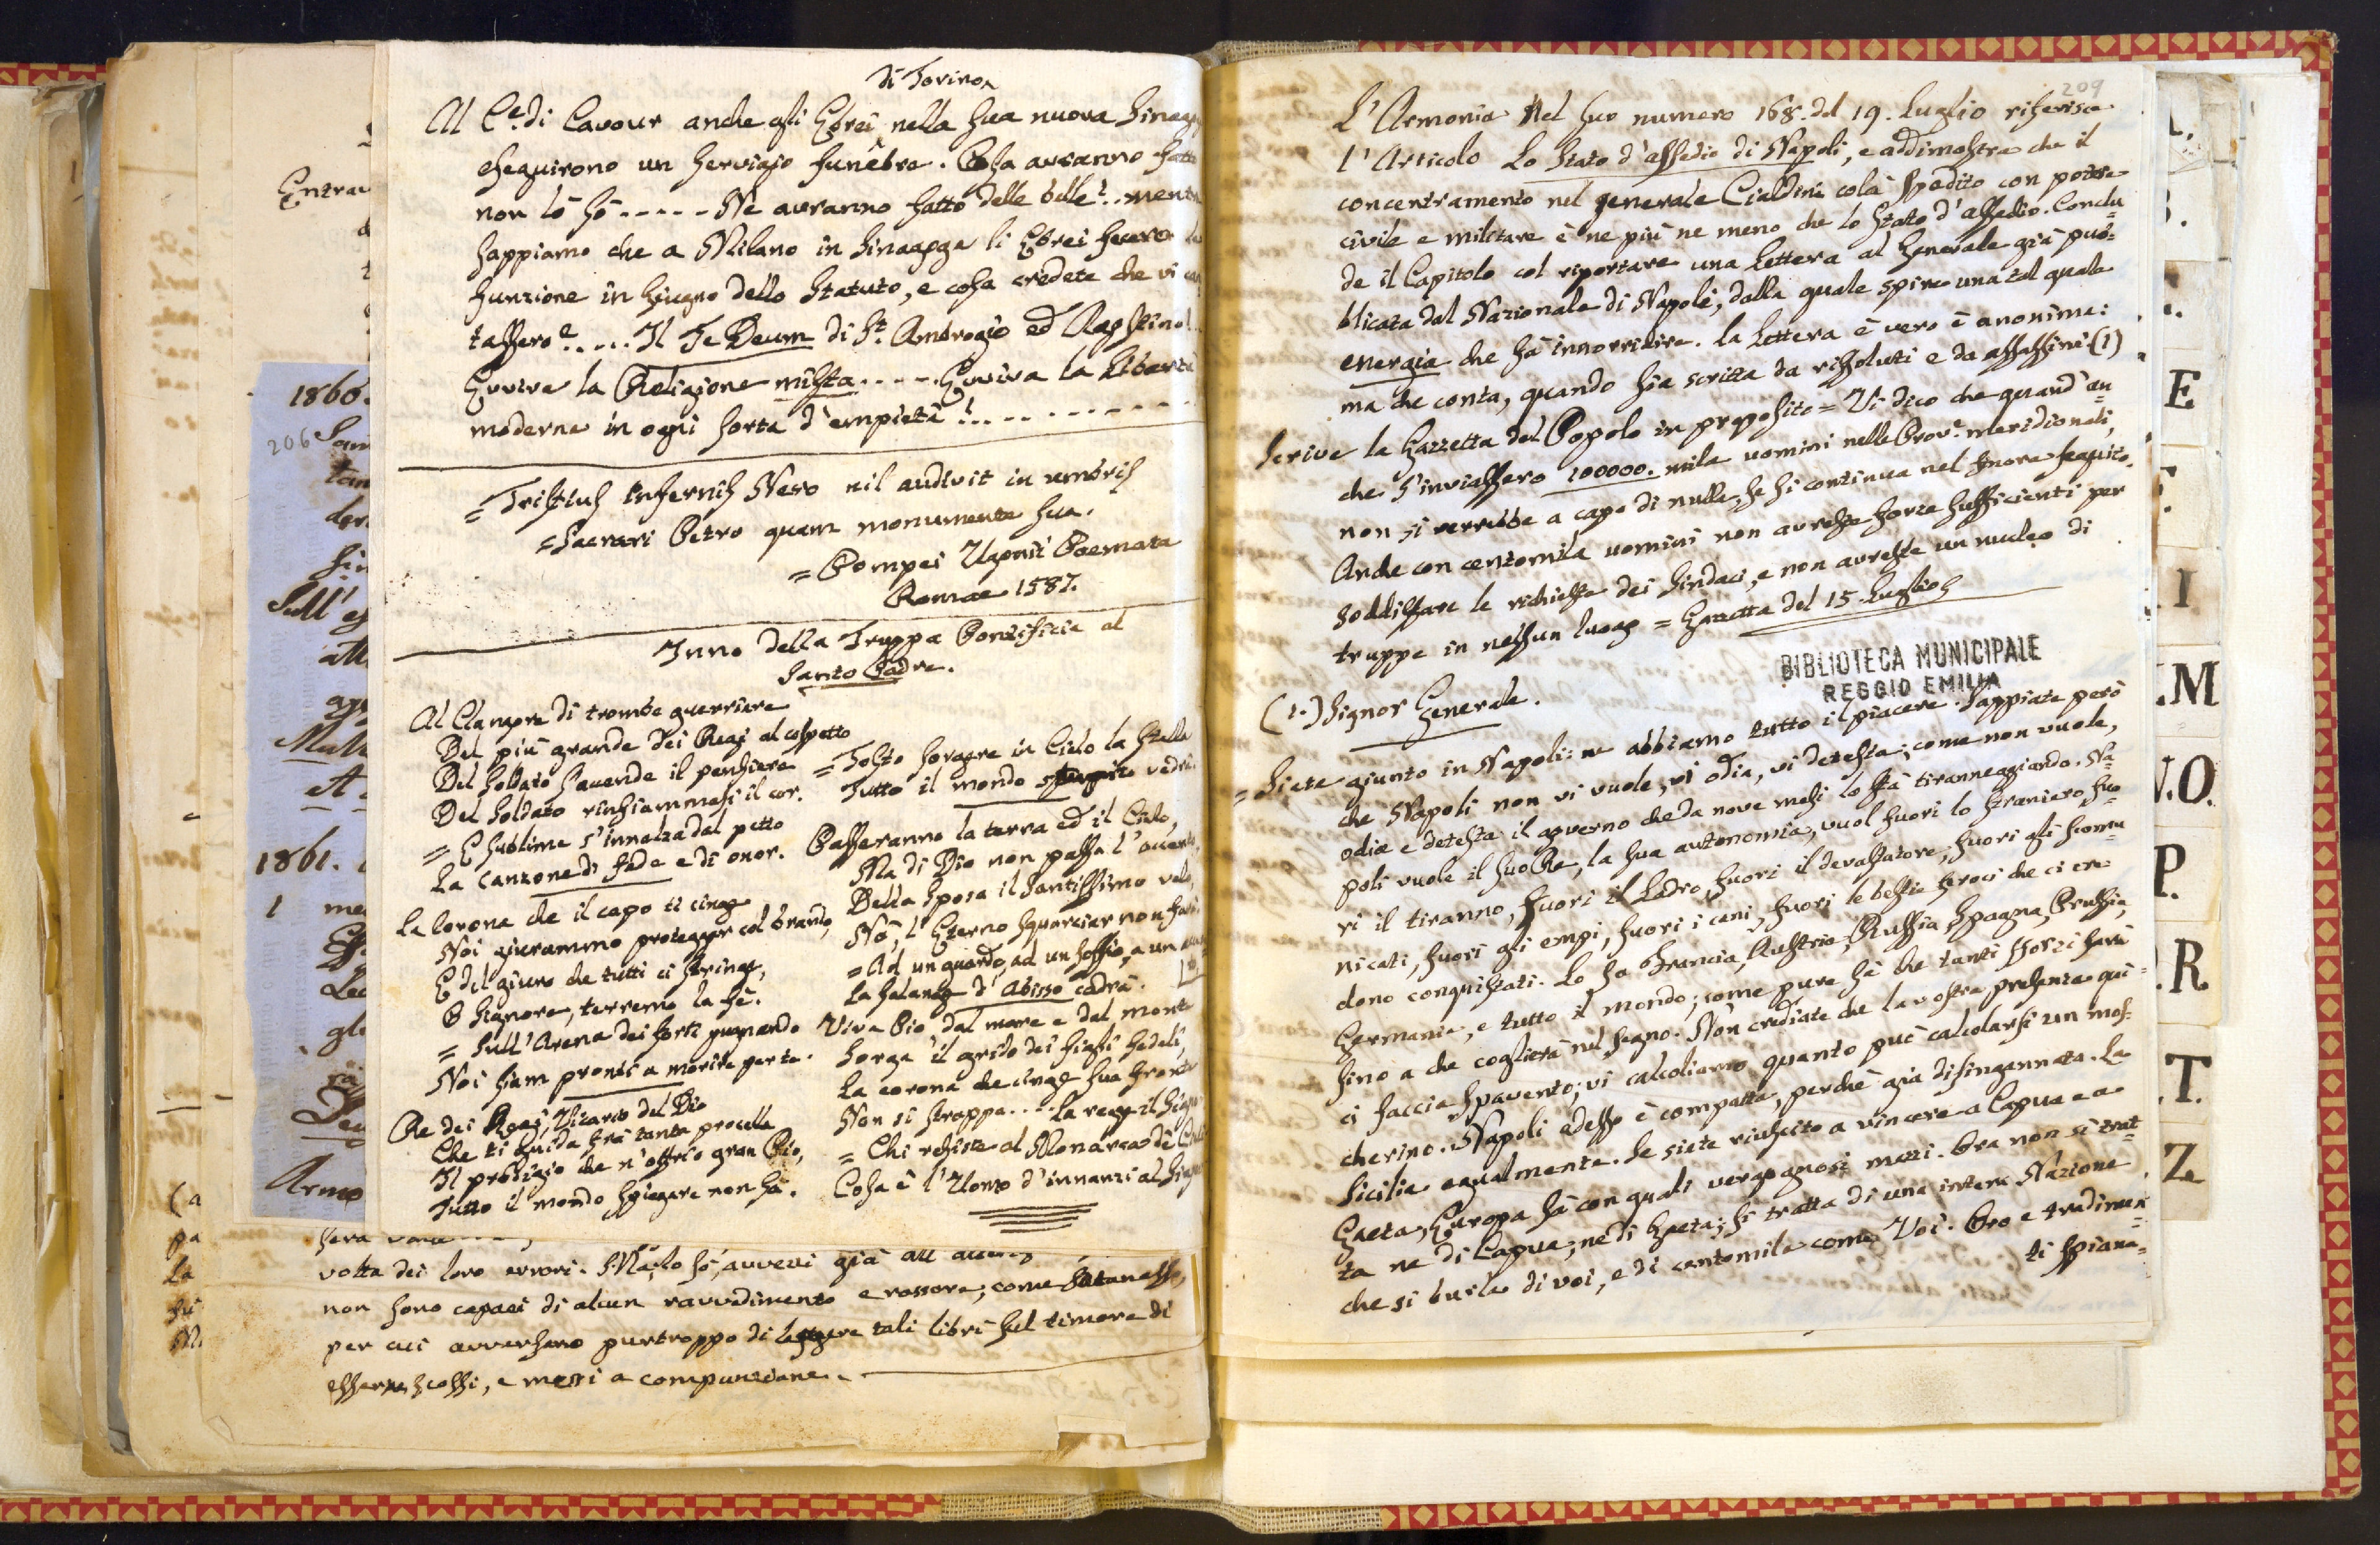 di Torino
Al C.e di Cavour anche gli Ebrei nella sua nuova Sinag
eseguirono un servigio funebre. Cosa avranno fatto
non lo so ----- Ne avranno fatto delle belle!.. mentre
sappiamo che a Milano in Sinagoga li Ebrei fecero la
funzione in Giugno dello Statuto, e cosa credete che vi can
tassero?.... Il Te Deum di S.t Ambrogio ed Agostino!..
Evviva la Religione mista.... Evviva la Libertà
moderna in ogni sorta d'empietà!..........
= Tristius infernis Nero nil audivit in umbris
= Sacrari Petro quam monumenta sua.
= Pompei Ugonii Poemata
Romae 1587.
Inno della Truppa Pontificia al
Santo Padre.
Al Clangore di trombe guerriere
Del più grande dei Regi al cospetto
Del soldato s'accende il pensiere
Del soldato rinfiammasi il cor.
= E sublime s'innalza dal petto
La canzone di fede e di onor.
La Corona che il capo ti cinge
Noi giurammo protegger col brando,
E del giuro che tutti ci stringe,
O Signore, terremo la fè.
= Sull'Arena dei forti pugnando
Noi siam pronti a morire per te.
Re dei Regi, Vicario del Dio
Che ti guida frà tanta procella
Il prodigio che n'offrio gran Pio,
Tutto il mondo spiegare non sa.
= Tosto sorgere in Cielo la stella
Tutto il mondo stupito vedrà.
Passeranno la terra ed il Cielo,
Ma di Dio non passa l'
Della Sposa il Santissimo velo,
Nò, l'Eterno squarciar non farà.
= Ad un guardo, ad un soffio, a un
La falange d'Abisso cadrà.
Viva Pio, dal mare e dal monte
Sorga il grido dei figli fedeli,
La corona che cinge sua fronte
Non si strappa.... La regge il Sign
= Chi resiste al Monarca de' Cieli
Cosa è l'Uomo d'innanzi al Sign
volta dei loro errori. Ma, lo so, avvezzi già
non sono capaci di alcun ravvedimento e rossore; come Satanasso,
per cui avversano purtroppo di leggere tali libri sul timore di
esserne scossi, e messi a compunzione.
Entra
1860.
206
Sull'
1861.
1
Armo
209
L'Armonia Nel suo numero 168. del 19. Luglio riferisce
l'Articolo Lo Stato d'assedio di Napoli, e addimostra che il
concentramento nel generale Cialdini colà spedito con potere
civile e militare è ne più ne meno che lo Stato d'assedio. Conclu=
de il Capitolo col riportare una Lettera al Generale già pub=
blicata dal Nazionale di Napoli, dalla quale spira una tal quale
energia che fà inorridire. La Lettera è vero è anonima:
ma che conta, quando sia scritta da rissoluti e da assassini (1)
Scrive la Gazzetta del Popolo in proposito = Vi dico che quand'an=
che s'inviassero 100000. mila uomini nelle Prov.e meridionali,
non si verrebbe a capo di nulla, se si continua nel finora seguito.
Anche con centomila uomini non avreste forze sufficienti per
soddisfare le richieste dei Sindaci, e non avreste un nucleo di
truppe in nessun luogo = Gazzetta del 15. Luglio
BIBLIOTECA MUNICIPALE
REGGIO EMILIA
(1.) Signor Generale.
= Siete giunto in Napoli: ne abbiamo tutto il piacere. Sappiate però
che Napoli non vi vuole, vi odia, vi detesta; come non vuole,
odia e detesta il governo che da nove mesi lo stà tiranneggiando. Na=
poli vuole il suo Re, la sua autonomia, vuol fuori lo straniero, fuo=
ri il tiranno, fuori il Ladro, fuori il devastatore, fuori gli scomu=
nicati, fuori gli empi, fuori i cani, fuori le bestie feroci che ci cre=
dono conquistati. Lo sa Francia, Austria, Russia, Spagna, Prussia,
Germania, e tutto il mondo; come pure sà che tanti sforzi farà
fino a che coglierà nel segno. Non crediate che la vostra presenza quì
ci faccia spavento; vi calcoliamo quanto può calcolarsi un mos=
cherino. Napoli adesso è compatta, perchè già disingannata. La
Sicilia egualmente. Se siete riuscito a vincere a Capua e a
Gaeta, Europa sà con quali vergognosi mezzi. Ora non si trat=
ta ne di Capua, ne di Gaeta; si tratta di una intera Nazione
che si burla di voi, e di centomila come Voi. Oro e tradimen=
ti spiana=
E
F.
I
M
N.O.
P.
R.
T.
Z